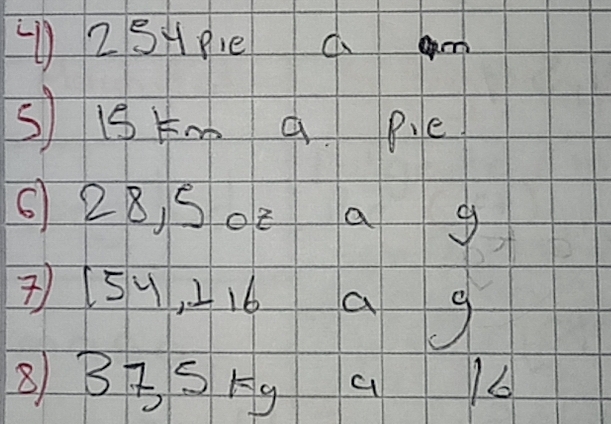 4) 254 pie a m
5) 15 km a. pie.
6) 28,5 oz a g
7) 154,1 lb a g
8) 37,5 kg a lb